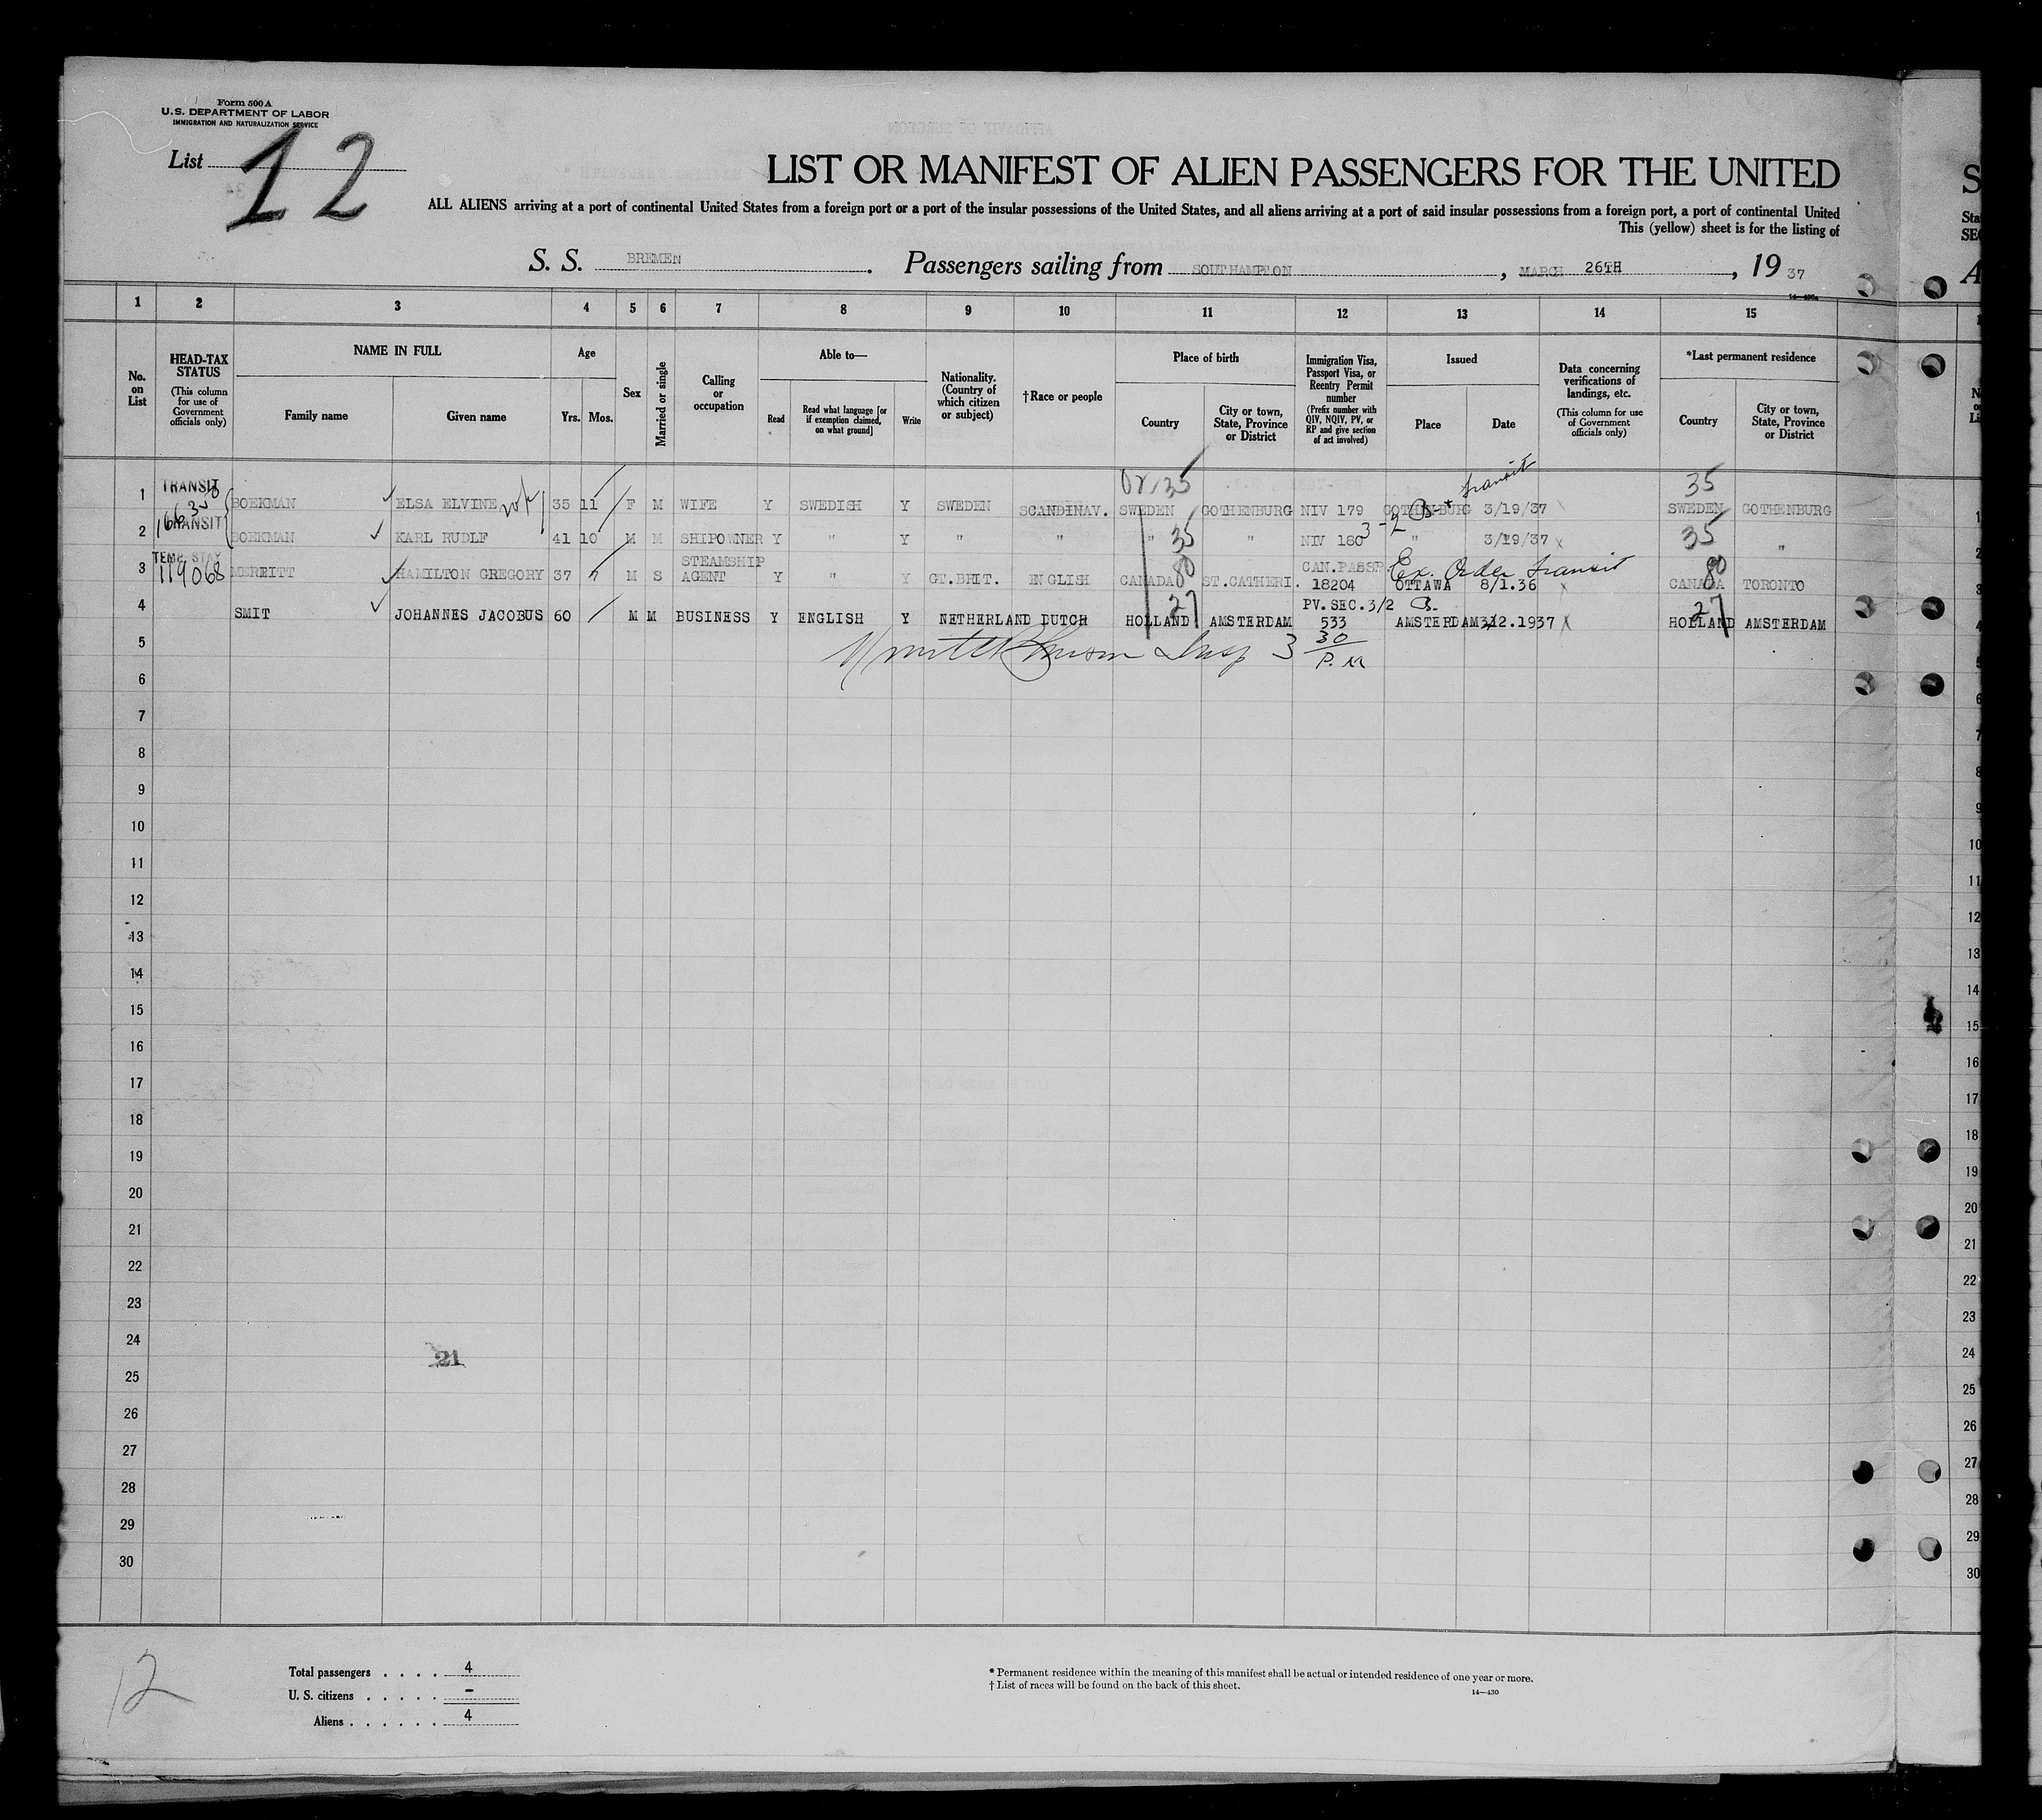 Form 500 A
U.S. DEPARTMENT OF LABOR
IMMIGRATION AND NATURALIZATION SERVICE
List 12
LIST OR MANIFEST OF ALIEN PASSENGERS FOR THE UNITED
ALL ALIENS arriving at a port of continental United States from a foreign port or a port of the insular possessions of the United States, and all aliens arriving at a port of said insular possessions from a foreign port, a port of continental United
This (yellow) sheet is for the listing of
S. S. BREMEN. Passengers sailing from SOUTHAMPTON, MARCH 26TH, 19 37
1 2 3 4 5 6 7 8 9 10 11 12 13 14 15
No. on List
HEAD-TAX STATUS (This column for use of Government officials only)
NAME IN FULL
Family name
Given name
Age
Yrs. Mos.
Sex
Married or single
Calling or occupation
Able to—
Read
Read what language [or if exemption claimed, on what ground]
Write
Nationality. (Country of which citizen or subject)
†Race or people
Place of birth
Country
City or town, State, Province or District
Immigration Visa, Passport Visa, or Reentry Permit number (Prefix number with QIV, NQIV, PV, or RP and give section of act involved)
Issued
Place
Date
Data concerning verifications of landings, etc. (This column for use of Government officials only)
*Last permanent residence
Country
City or town, State, Province or District
35 transit 35
1 TRANSIT BOEKMAN ELSA ELVINE 35 11 F M WIFE Y SWEDISH Y SWEDEN SCANDINAV. SWEDEN GOTHENBURG NIV 179 GOTHENBURG 3/19/37 SWEDEN GOTHENBURG
3-2
2 TRANSIT BOEKMAN KARL RUDLF 41 10 M M SHIPOWNER Y " Y " " " 35 " NIV 180 " 3/19/37 x 35 "
3 TEMP. STAY 119068 MERRITT HAMILTON GREGORY 37 7 M S STEAMSHIP AGENT Y " Y GT.BRIT. ENGLISH CANADA 80 ST.CATHERI. CAN.PASSP. 18204 OTTAWA 8/1.36 Ex. Order transit CANADA 80 TORONTO
4 SMIT JOHANNES JACOBUS 60 M M BUSINESS Y ENGLISH Y NETHERLAND DUTCH HOLLAND 27 AMSTERDAM PV.SEC.3/2 B. 533 AMSTERDAM 3/2.1937 X HOLLAND 27 AMSTERDAM
5 Insp 3 30 P.M
6
7
8
9
10
11
12
13
14
15
16
17
18
19
20
21
22
23
24
21
25
26
27
28
29
30
12
Total passengers . . . . 4
U. S. citizens . . . . . -
Aliens . . . . . . 4
* Permanent residence within the meaning of this manifest shall be actual or intended residence of one year or more.
† List of races will be found on the back of this sheet.
14—430